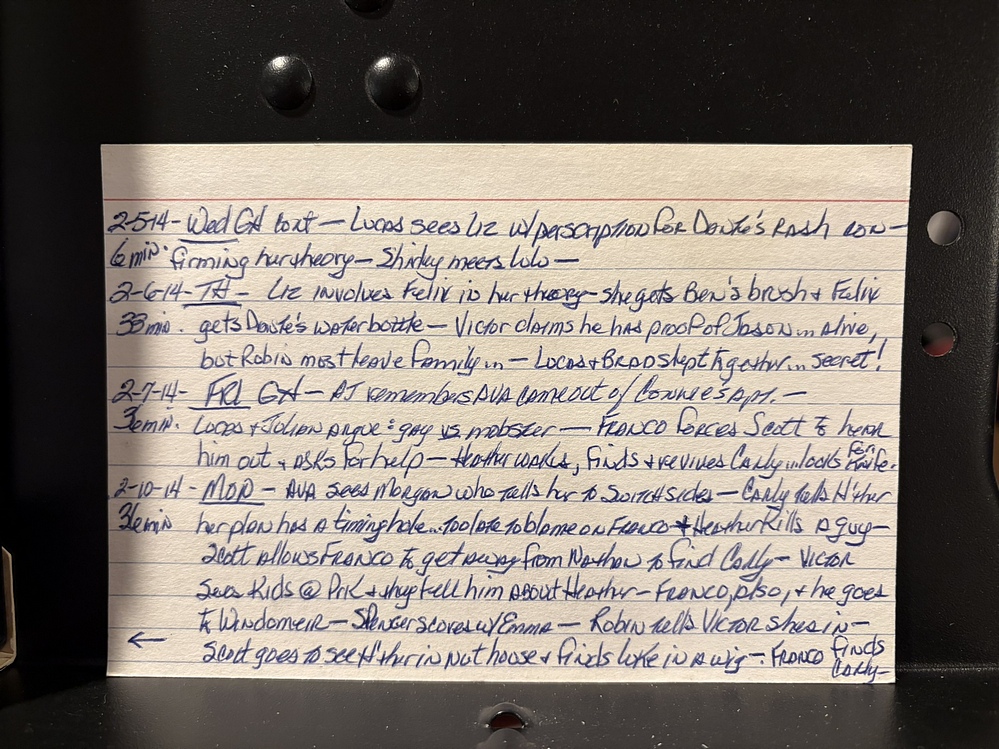 2-5-14- Wed GH cont - Lucas sees Liz w/perscription for Dante's rash con-
6 min. firming her theory - Shirley meets Lulu -
2-6-14- TH - Liz involves Felix in her theory - she gets Ben's brush + Felix
38 min. gets Dante's water bottle - Victor claims he has proof of Jason... alive,
but Robin must leave family... - Lucas + Brad slept together... secret!
2-7-14- FRI GH - AJ remembers Ava came out of Connie's apt. -
36 min. Lucas + Julian argue: gay vs. mobster - Franco forces Scott to hear
him out + asks for help - Heather wakes, finds + revives Carly... looks for knife.
2-10-14 - MON - Ava sees Morgan who tells her to switch sides - Carly tells H'ther
36 min her plan has a timing hole... too late to blame on Franco + Heather kills a guy -
Scott allows Franco to get away from Nathan to find Carly - Victor
sees kids @ Prk + they tell him about Heather - Franco, also, + he goes
to Windomeir - Spencer scores w/Emma - Robin tells Victor she's in -
← Scott goes to see H'ther in nut house + finds Luke in a wig - Franco finds
Carly -